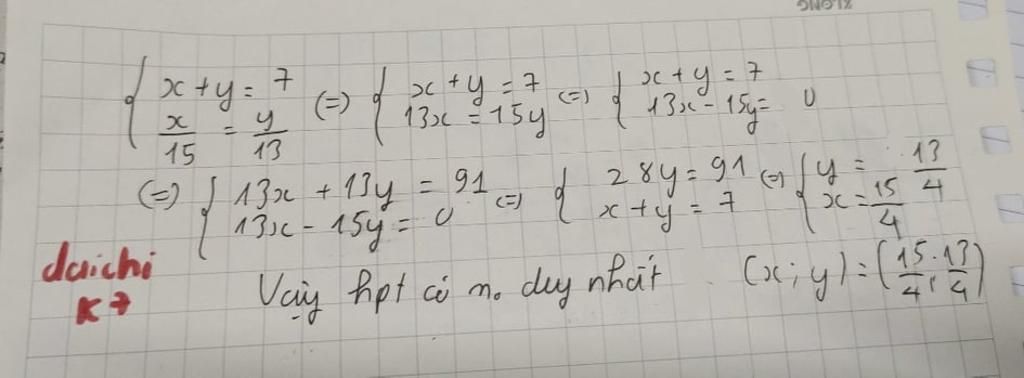 XLONG
{ x + y = 7 ; x/15 = y/13 (=) { x + y = 7 ; 13x = 15y (=) { x + y = 7 ; 13x - 15y = 0
(=) { 13x + 13y = 91 ; 13x - 15y = 0 (=) { 28y = 91 ; x + y = 7 (=) { y = 13/4 ; x = 15/4
daichi
K7
Vậy hpt có n₀ duy nhất (x; y) = (15/4; 13/4)